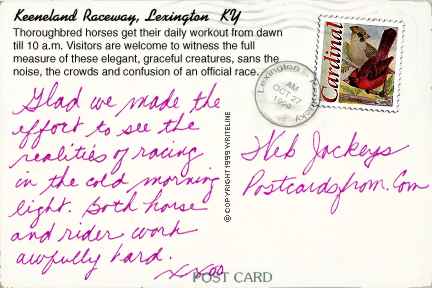 Keeneland Raceway, Lexington KY
Thoroughbred horses get their daily workout from dawn
till 10 a.m. Visitors are welcome to witness the full
measure of these elegant, graceful creatures, sans the
noise, the crowds and confusion of an official race.
Glad we made the
effort to see the
realities of racing
in the cold morning
light. Both horse
and rider work
awfully hard.
xxoo
© COPYRIGHT 1995 WRITELINE
Cardinal
Lexington
AM
OCT 27
Web Jockeys
Postcardsfrom.Com
POST CARD